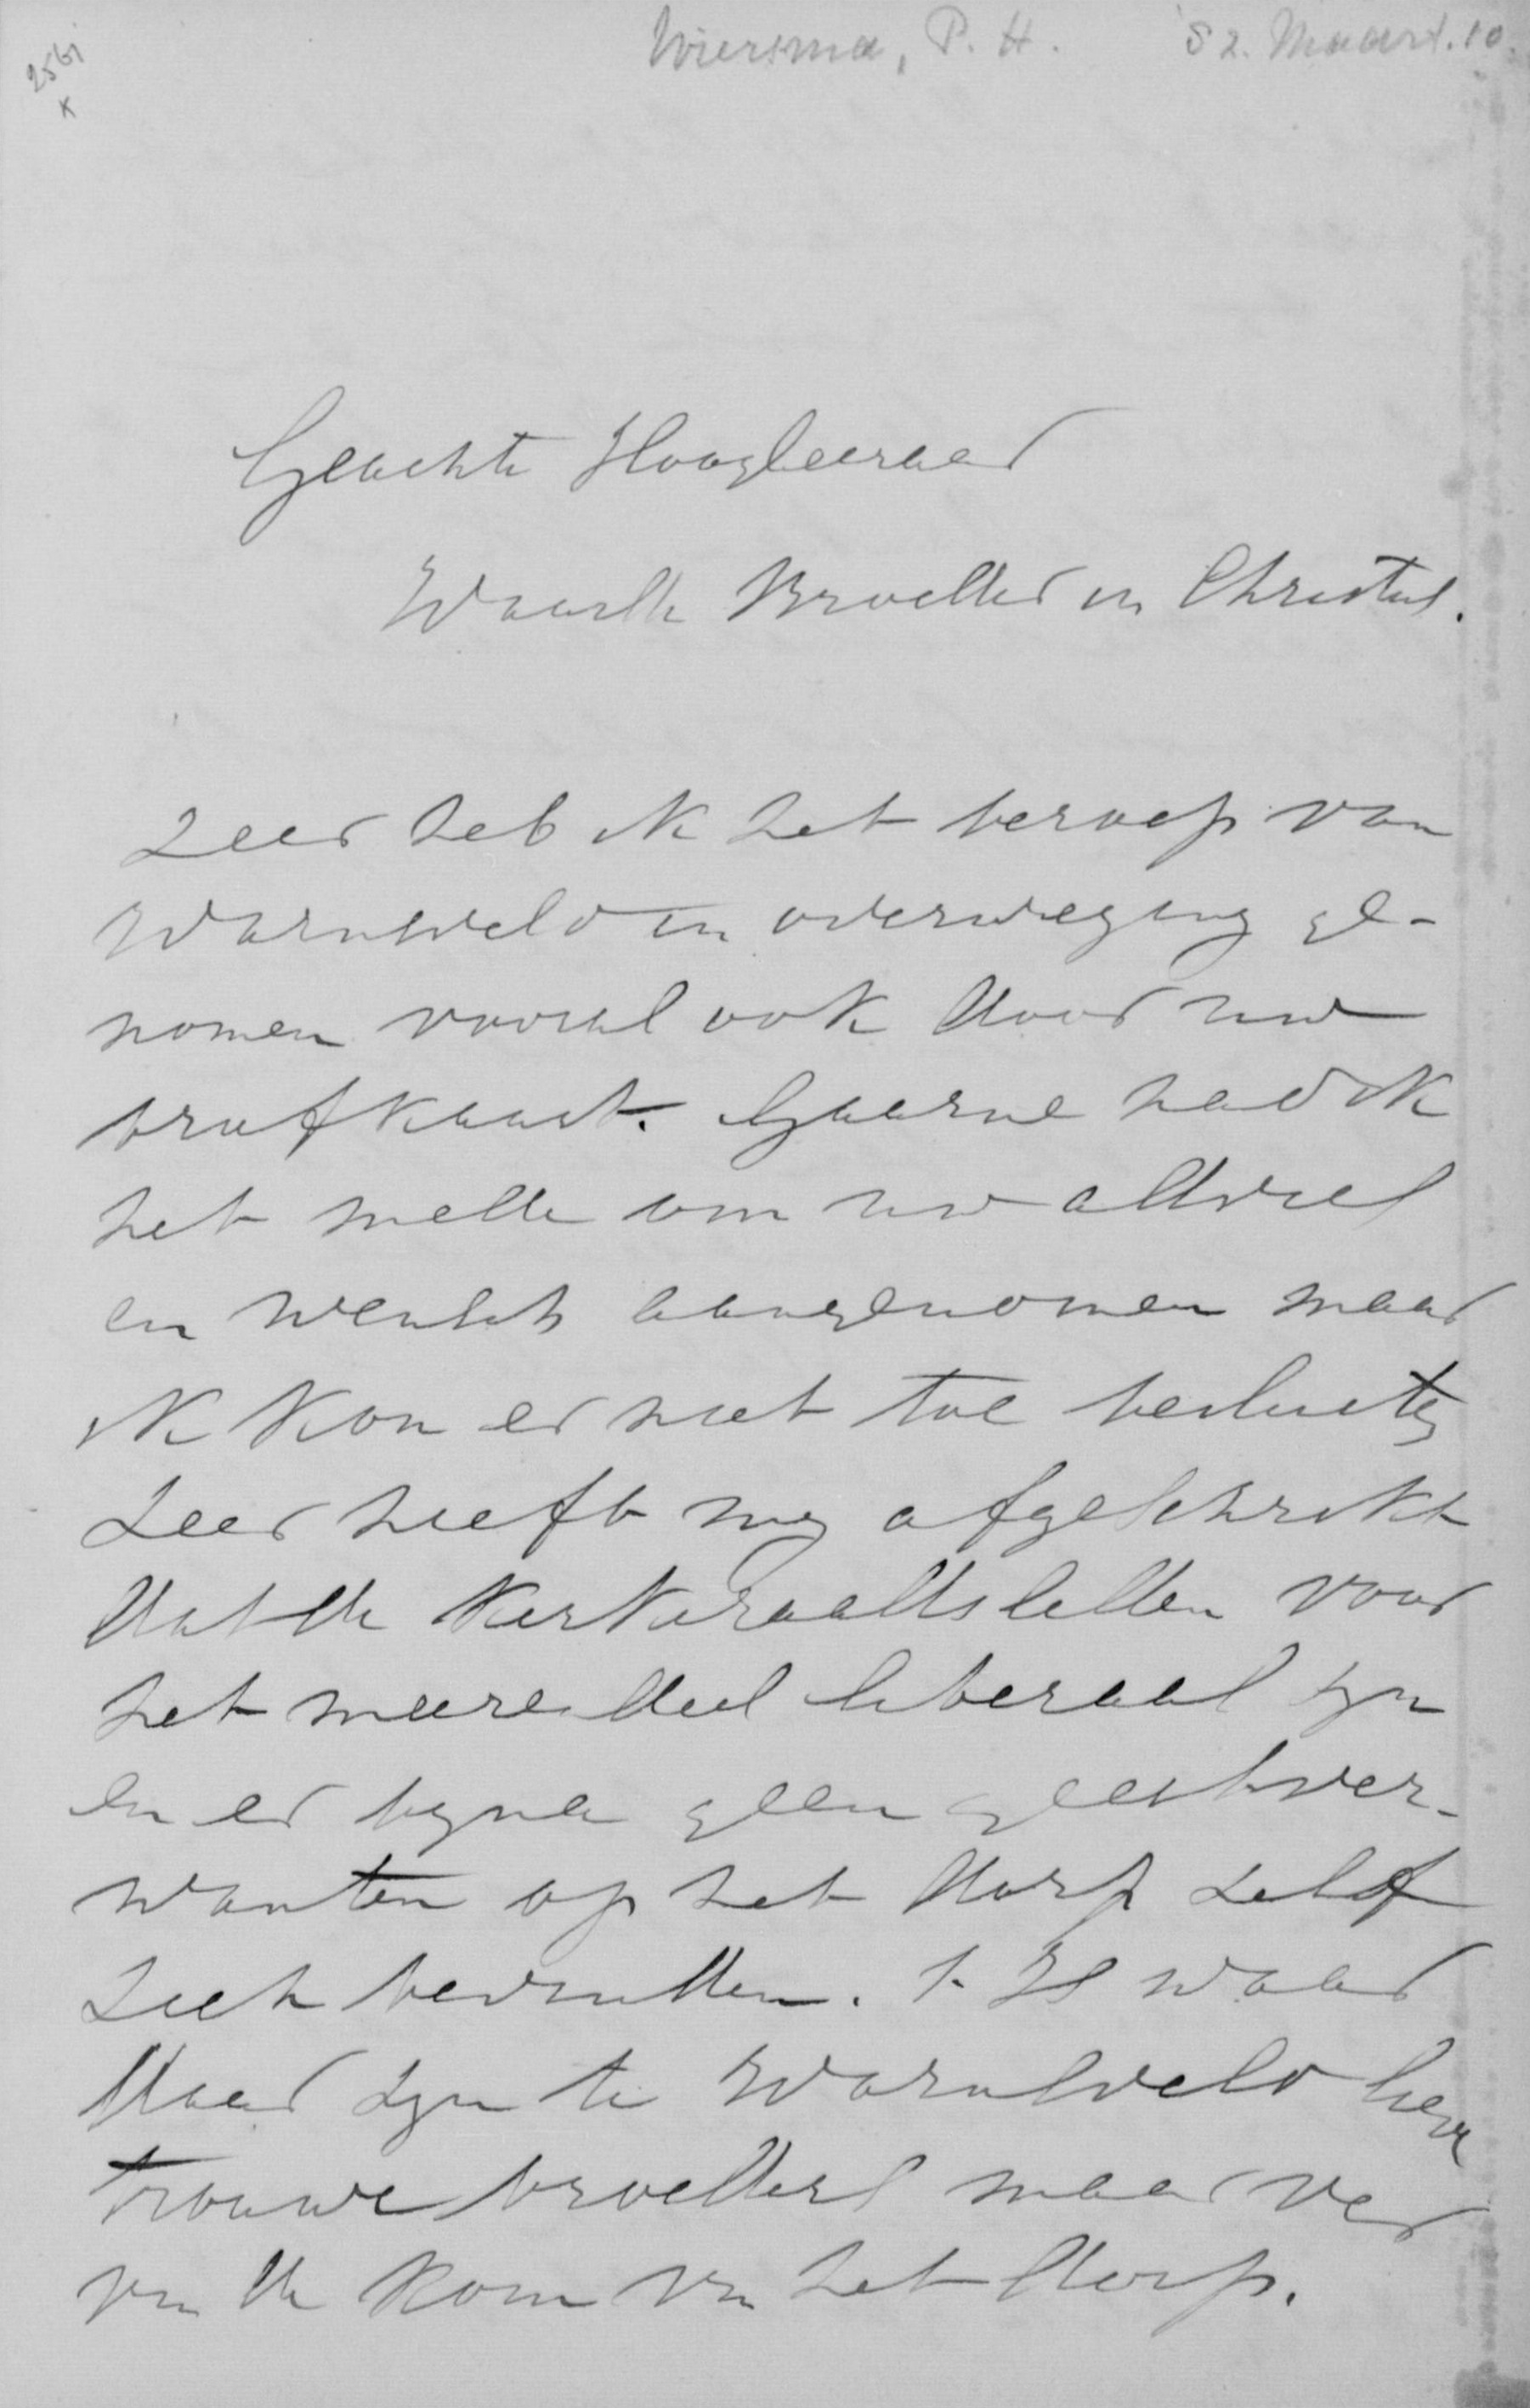 2561
x
Wiersma, P. H. '82. Maart. 10.
Geachte Hoogleeraar
Waarde Broeder in Christus.
Zeer heb ik het beroep van
Warnsveld in overweging ge-
nomen vooral ook door uw
briefkaart. Gaarne had ik
het mede om uw advies
en wensch aangenomen maar
ik kon er niet toe besluiten
Zeer heeft mij afgeschrikt
dat de Kerkeraadsleden voor
het meerendeel liberaal zijn
en er bijna geen geestver-
wanten op het dorp zelf
zich bevinden. 't Is waar
daar zijn te Warnsveld
trouwe broeders maar ver
van de Kom van het dorp.